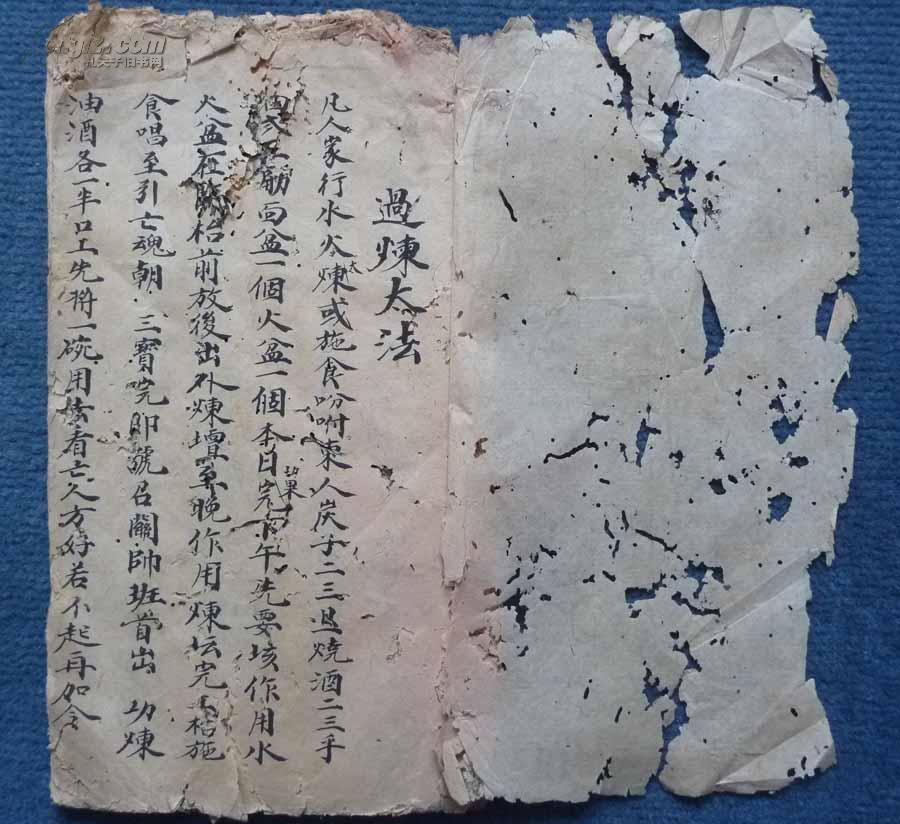 過煉太法
凡人家行水火煉太或施食吩咐東人炭子二三 燒酒二三乎
觔面盆一個火盆一個本日完功果下午先要 作用水
火盆在 枯前放後出外煉壇至晚作用煉坛完 枯施
食唱至引亡魂朝三寶完即號召關帥班首出 功煉
油酒各一半口工先將一碗用 看亡人方好若不起再如全